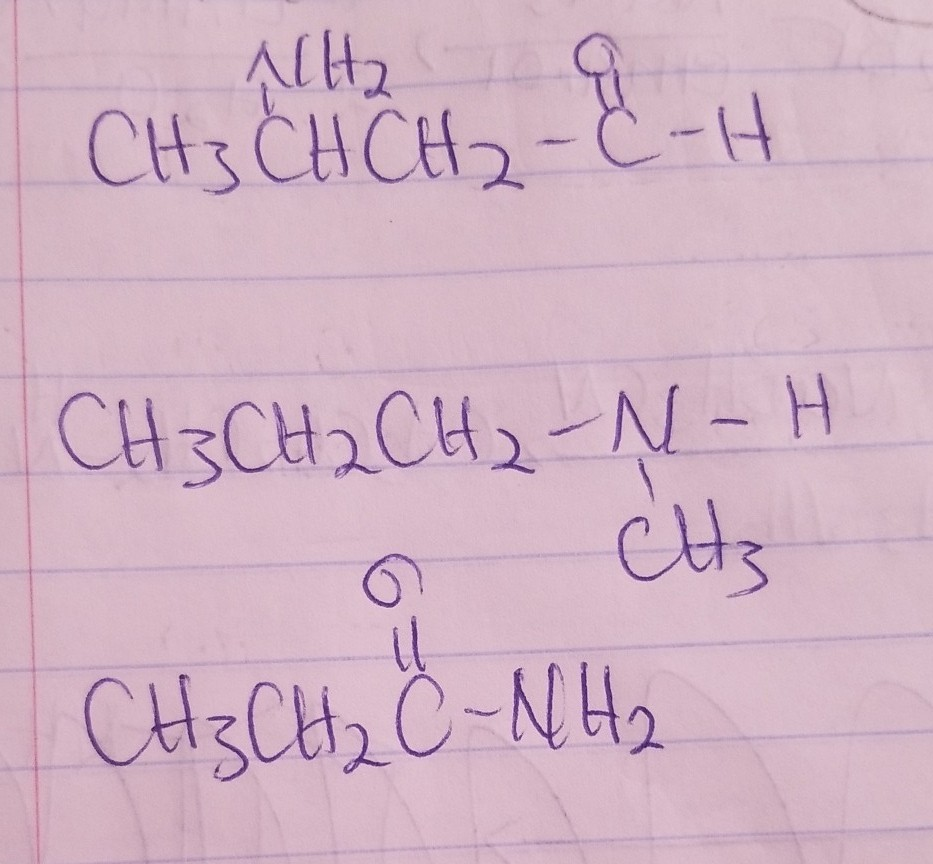 NH2 O
CH3CHCH2-C-H
CH3CH2CH2-N-H
CH3
O
CH3CH2C-NH2